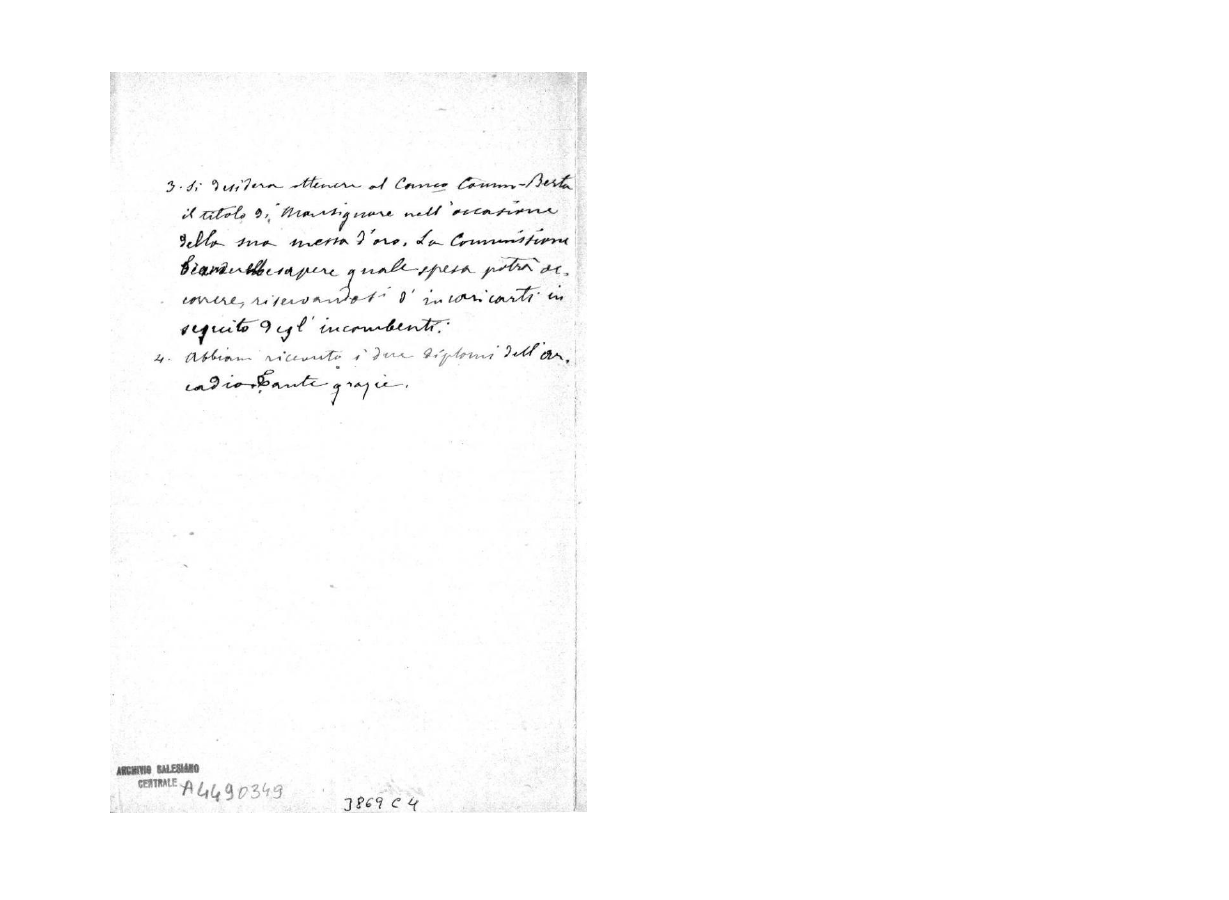 3. Si desidera ottenere al Canco Comm. Berta
il titolo di Monsignore nell'occasione
della sua messa d'oro. La Commissione
sapere quale spesa potrà oc-
correre, riservandosi d'incaricarti in
seguito degl'incombenti.
4. Abbiam ricevuto i due diplomi dell'Ar-
cadia. Tante grazie.
ARCHIVIO SALESIANO
CENTRALE
A4490349
3869 C 4